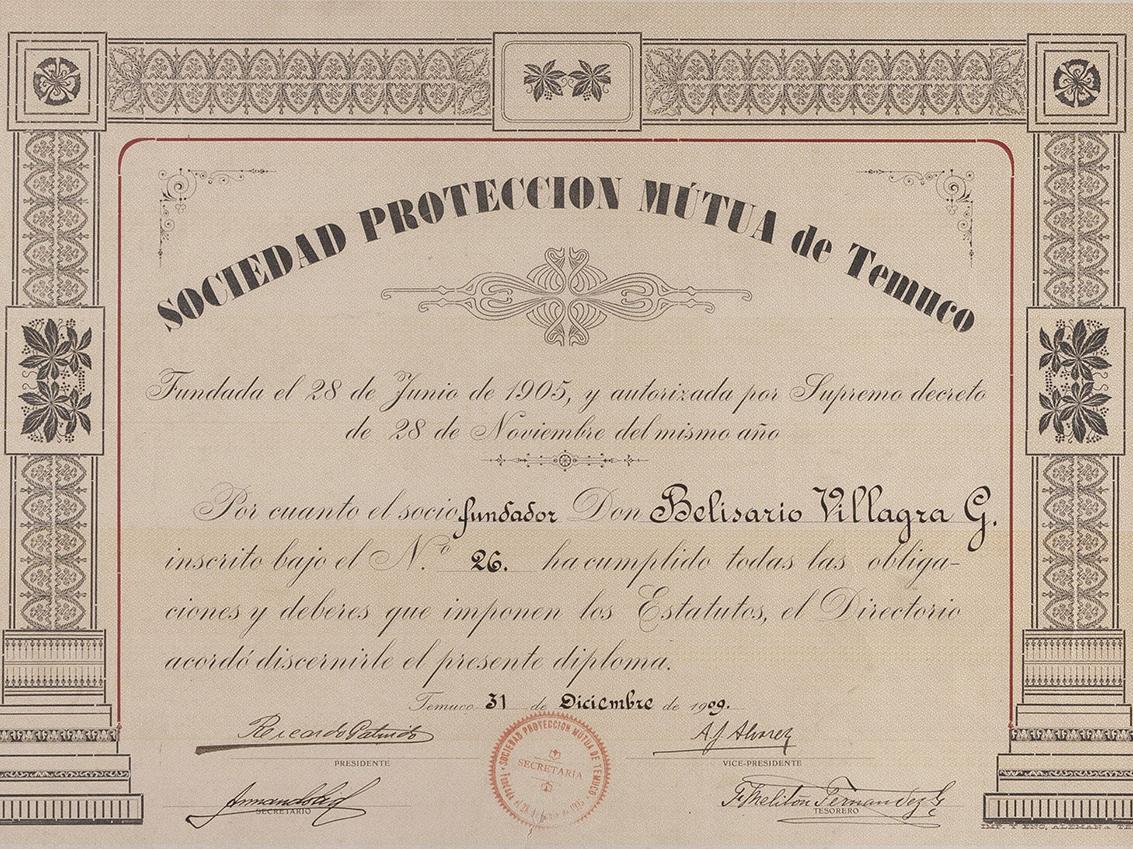 SOCIEDAD PROTECCION MÚTUA de Temuco
Fundada el 28 de Junio de 1905, y autorizada por Supremo decreto
de 28 de Noviembre del mismo año
Por cuanto el socio fundador Don Belisario Villagra G.
inscrito bajo el N.º 26. ha cumplido todas las obliga-
ciones y deberes que imponen los Estatutos, el Directorio
acordó discernirle el presente diploma.
Temuco 31 de Diciembre de 1909.
Ricardo
PRESIDENTE
A. J. Alvarez
VICE-PRESIDENTE
SOCIEDAD PROTECCION MÚTUA DE TEMUCO
SECRETARIA
SECRETARIO
Fernandez G
TESORERO
IMP. Y ENC. ALEMANA